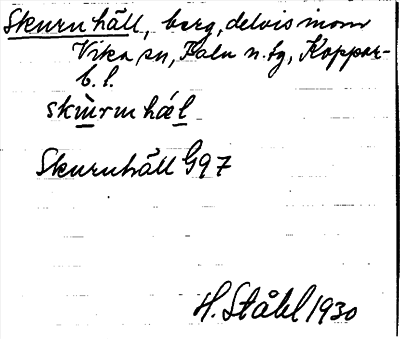 Skurnhäll, berg, delvis inom
Vika sn, Falu n. tg, Koppar-
b. l.
Skurnhäll G97
H. Ståhl 1930